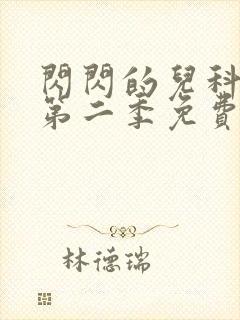 閃閃的兒科
第二季免費
林德瑞